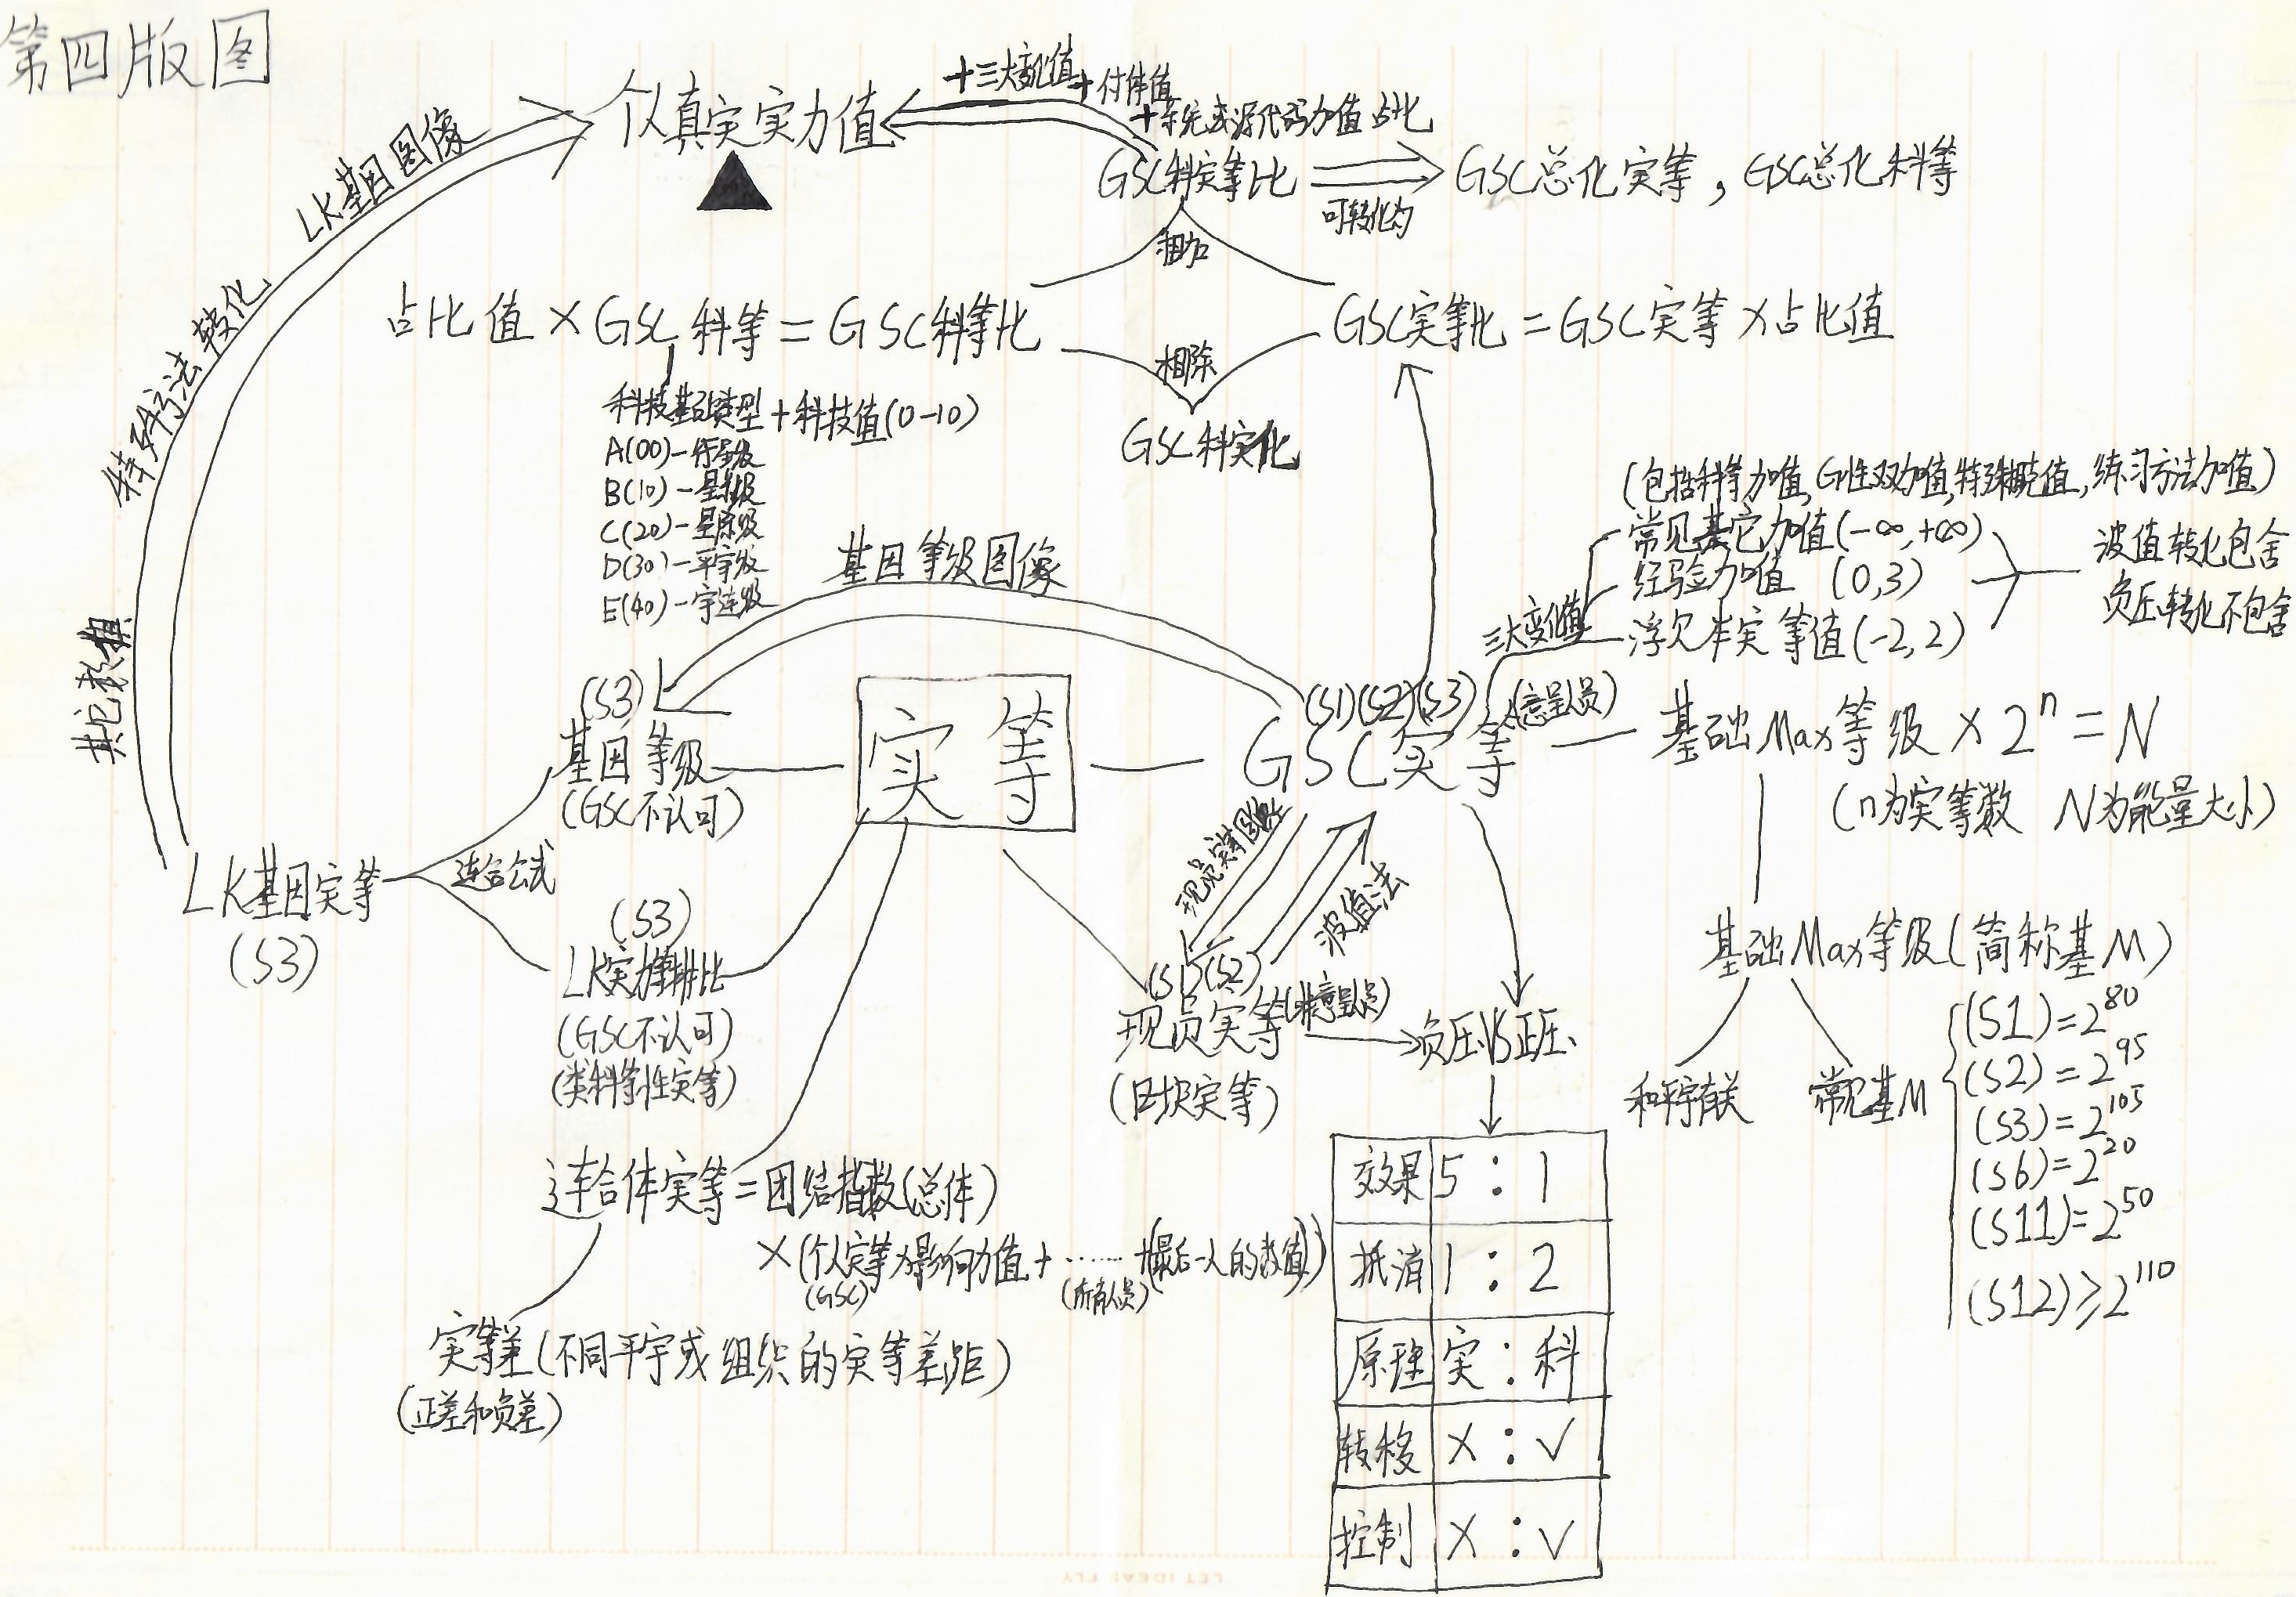 第四版图
个人真实实力值
+三大变化值
+付伴值
+系统或源代码加值占比
LK基因图像
特殊方法转化
其它数据
GSC科实等比
可转化为
GSC总化实等，GSC总化科等
相加
占比值×GSC科等=GSC科等比
GSC实等比=GSC实等×占比值
相除
GSC科实化
科技基础类型+科技值(0-10)
A(00)-行星级
B(10)-星球级
C(20)-星际级
D(30)-平宇级
E(40)-宇连级
基因等级图像
(包括科等加值,G性双加值,特殊概值,练习方法加值)
常见其它加值(-∞,+∞)
经验加值 (0,3)
浮欠本实等值(-2,2)
三大变化值
波值转化包含
负压转化不包含
(S3)
基因等级
(GSC不认可)
实等
(S1)(S2)(S3)
GSC实等
基础Max等级×2ⁿ=N
(n为实等数 N为能量大小)
LK基因实等
(S3)
连合公式
(S3)
LK实力等耕比
(GSC不认可)
(类科等性实等)
现员实等图像
波值法
(S1)(S2)
现员实等
(团块实等)
负压VS正压
基础Max等级(简称基M)
和平宇有关
常见基M
(S1)=2⁸⁰
(S2)=2⁹⁵
(S3)=2¹⁰⁵
(S6)=2²⁰
(S11)=2⁵⁰
(S12)≥2¹¹⁰
连合体实等=团结指数(总体)
×(个人实等×影响力值+……+(最后一人的数值))
(GSC)
(所有人员)
实等差(不同平宇或组织的实等差距)
(正差和负差)
效果 5:1
抵消 1:2
原理 实:科
转移 ×:✓
控制 ×:✓
LET IDEAS FLY